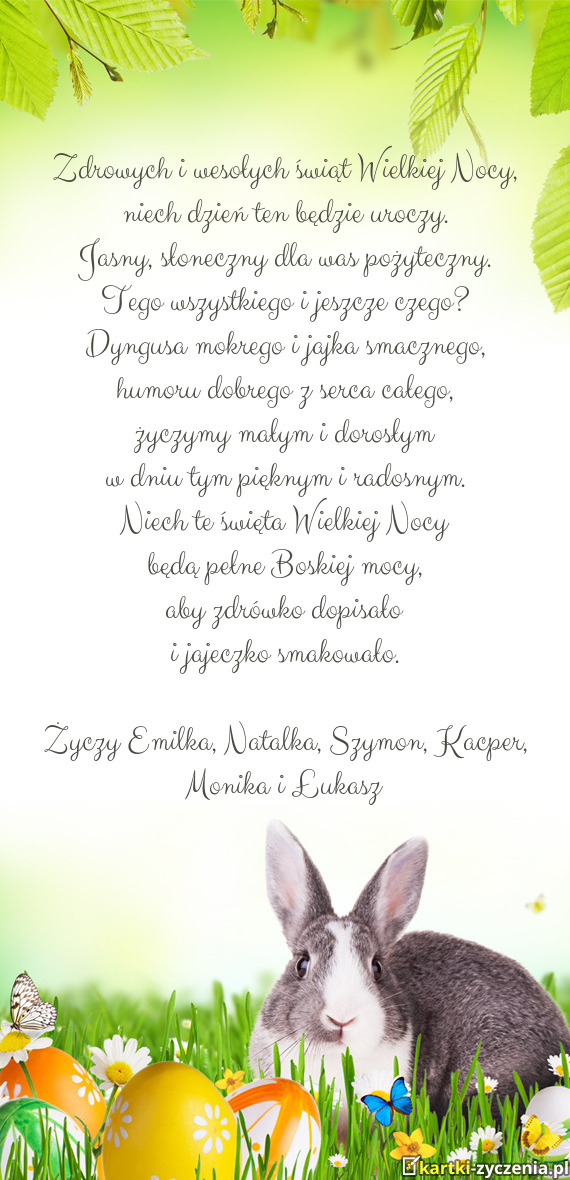 Zdrowych i wesołych świąt Wielkiej Nocy,
niech dzień ten będzie uroczy.
Jasny, słoneczny dla was pożyteczny.
Tego wszystkiego i jeszcze czego?
Dyngusa mokrego i jajka smacznego,
humoru dobrego z serca całego,
życzymy małym i dorosłym
w dniu tym pięknym i radosnym.
Niech te święta Wielkiej Nocy
będą pełne Boskiej mocy,
aby zdrówko dopisało
i jajeczko smakowało.
Życzy Emilka, Natalka, Szymon, Kacper,
Monika i Łukasz
kartki-zyczenia.pl